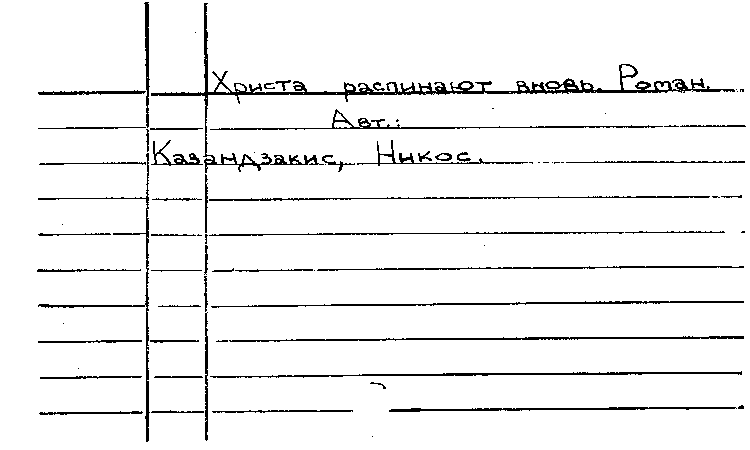 Христа распинают вновь. Роман.
Авт.:
Казандзакис, Никос.